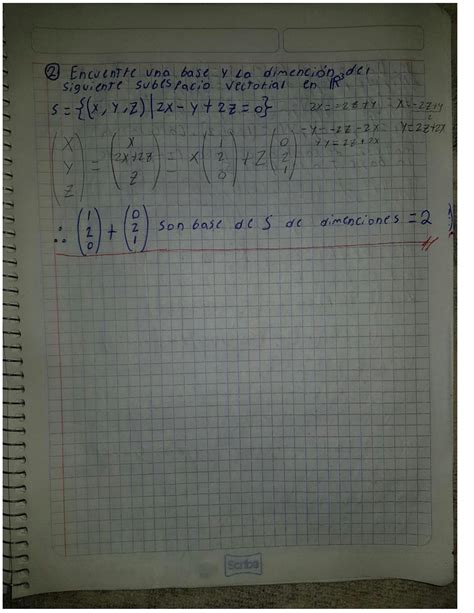 ② Encuentre una base y La dimención del
siguiente subespacio vectorial en ℝ³
S = {(X, Y, Z) | 2X - Y + 2Z = 0}
2X = -2Z + Y
X = -2Z + Y / 2
-Y = -2Z - 2X
Y = 2Z + 2X
Y = 2Z + 2X
(X Y Z) = (X 2X+2Z Z) = X (1 2 0) + Z (0 2 1)
∴ (1 2 0) + (0 2 1) son base de S de dimenciones = 2
Scribe